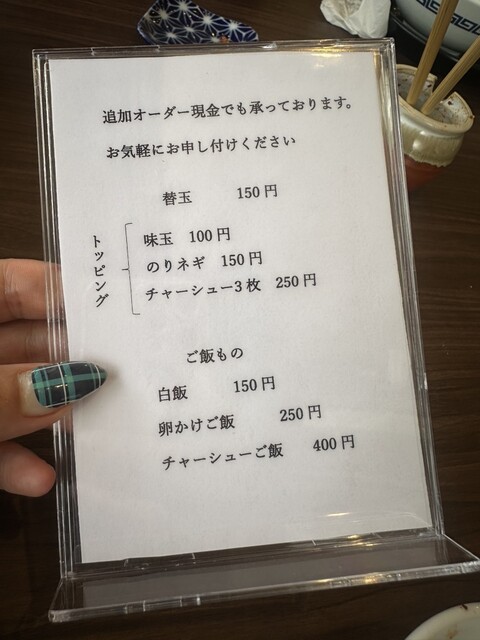 追加オーダー現金でも承っております。
お気軽にお申し付けください
替玉 150円
トッピング
味玉 100円
のりネギ 150円
チャーシュー3枚 250円
ご飯もの
白飯 150円
卵かけご飯 250円
チャーシューご飯 400円